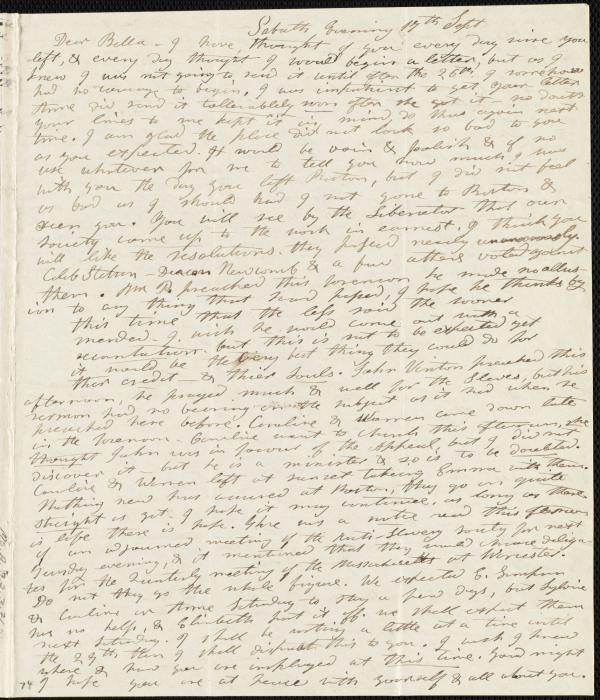 Sabath Evening 17th Sept
Dear Bella - I have thought of you every day since you
left, & every day thought I would begin a letter, but as I
knew I was not going to send it until after the 26th, I somehow
had no courage to begin, I was impatient to get your letter
Anne did send it tollerablely soon after she got it - no doubt
your lines to me kept it in mind, do thus again next
time. I am glad the place did not look so bad to you
as you expected. It would be vain & foolish & of no
use whatever for me to tell you how much I was
with you the day you left Boston, but I did not feel
as bad as I should had I not gone to Boston &
seen you. You will see by the Liberator that our
society came up to the work in earnest. I think you
will like the resolutions. they passed nearly unanimously
Caleb Stetson - Deacon Newcomb & a few others voted against
them. Mr P. preached this forenoon he made no allus-
ion to any thing that had passed, I hope he thinks by
this time that the less said the sooner
mended - I wish he would come out with a
recantation. but this is not to be expected yet
it would be the very best thing they could do for
their credit - & their souls. John Vinton preached this
afternoon, he prayed much & well for the Slaves, but his
sermon had no bearing on the subject as it had when he
preached here before. Caroline & Warren came down late
in the forenoon - Caroline went to church this afternoon, she
thought John was in favour of the Appeal, but I did not
discover it - but he is a minister & so is to be doubted.
Caroline & Warren left at sunset taking Emma with them.
Nothing new has occured at Boston, they go on quite
straight as yet. I hope it may continue, as long as there
is life there is hope. There was a notice read this afternoon
of an adjourned meeting of the Anti-Slavery society for next
Tuesday evening, & it mentioned that they would choose delega-
tes for the Quarterly meeting of the Massachusetts at Worcester.
Do not they go the whole figure. We expected E. Simpson
& Caroline or Anne Saturday to stay a few days, but Sylvia
has no help, & Elizabeth put it off. we shall expect them
next Saturday. I shall be writing a little at a time until
the 27th then I shall dispatch this to you. I wish I knew
where & how you are employed at this time. Good night
I hope you are at peace with yourself & all about you.